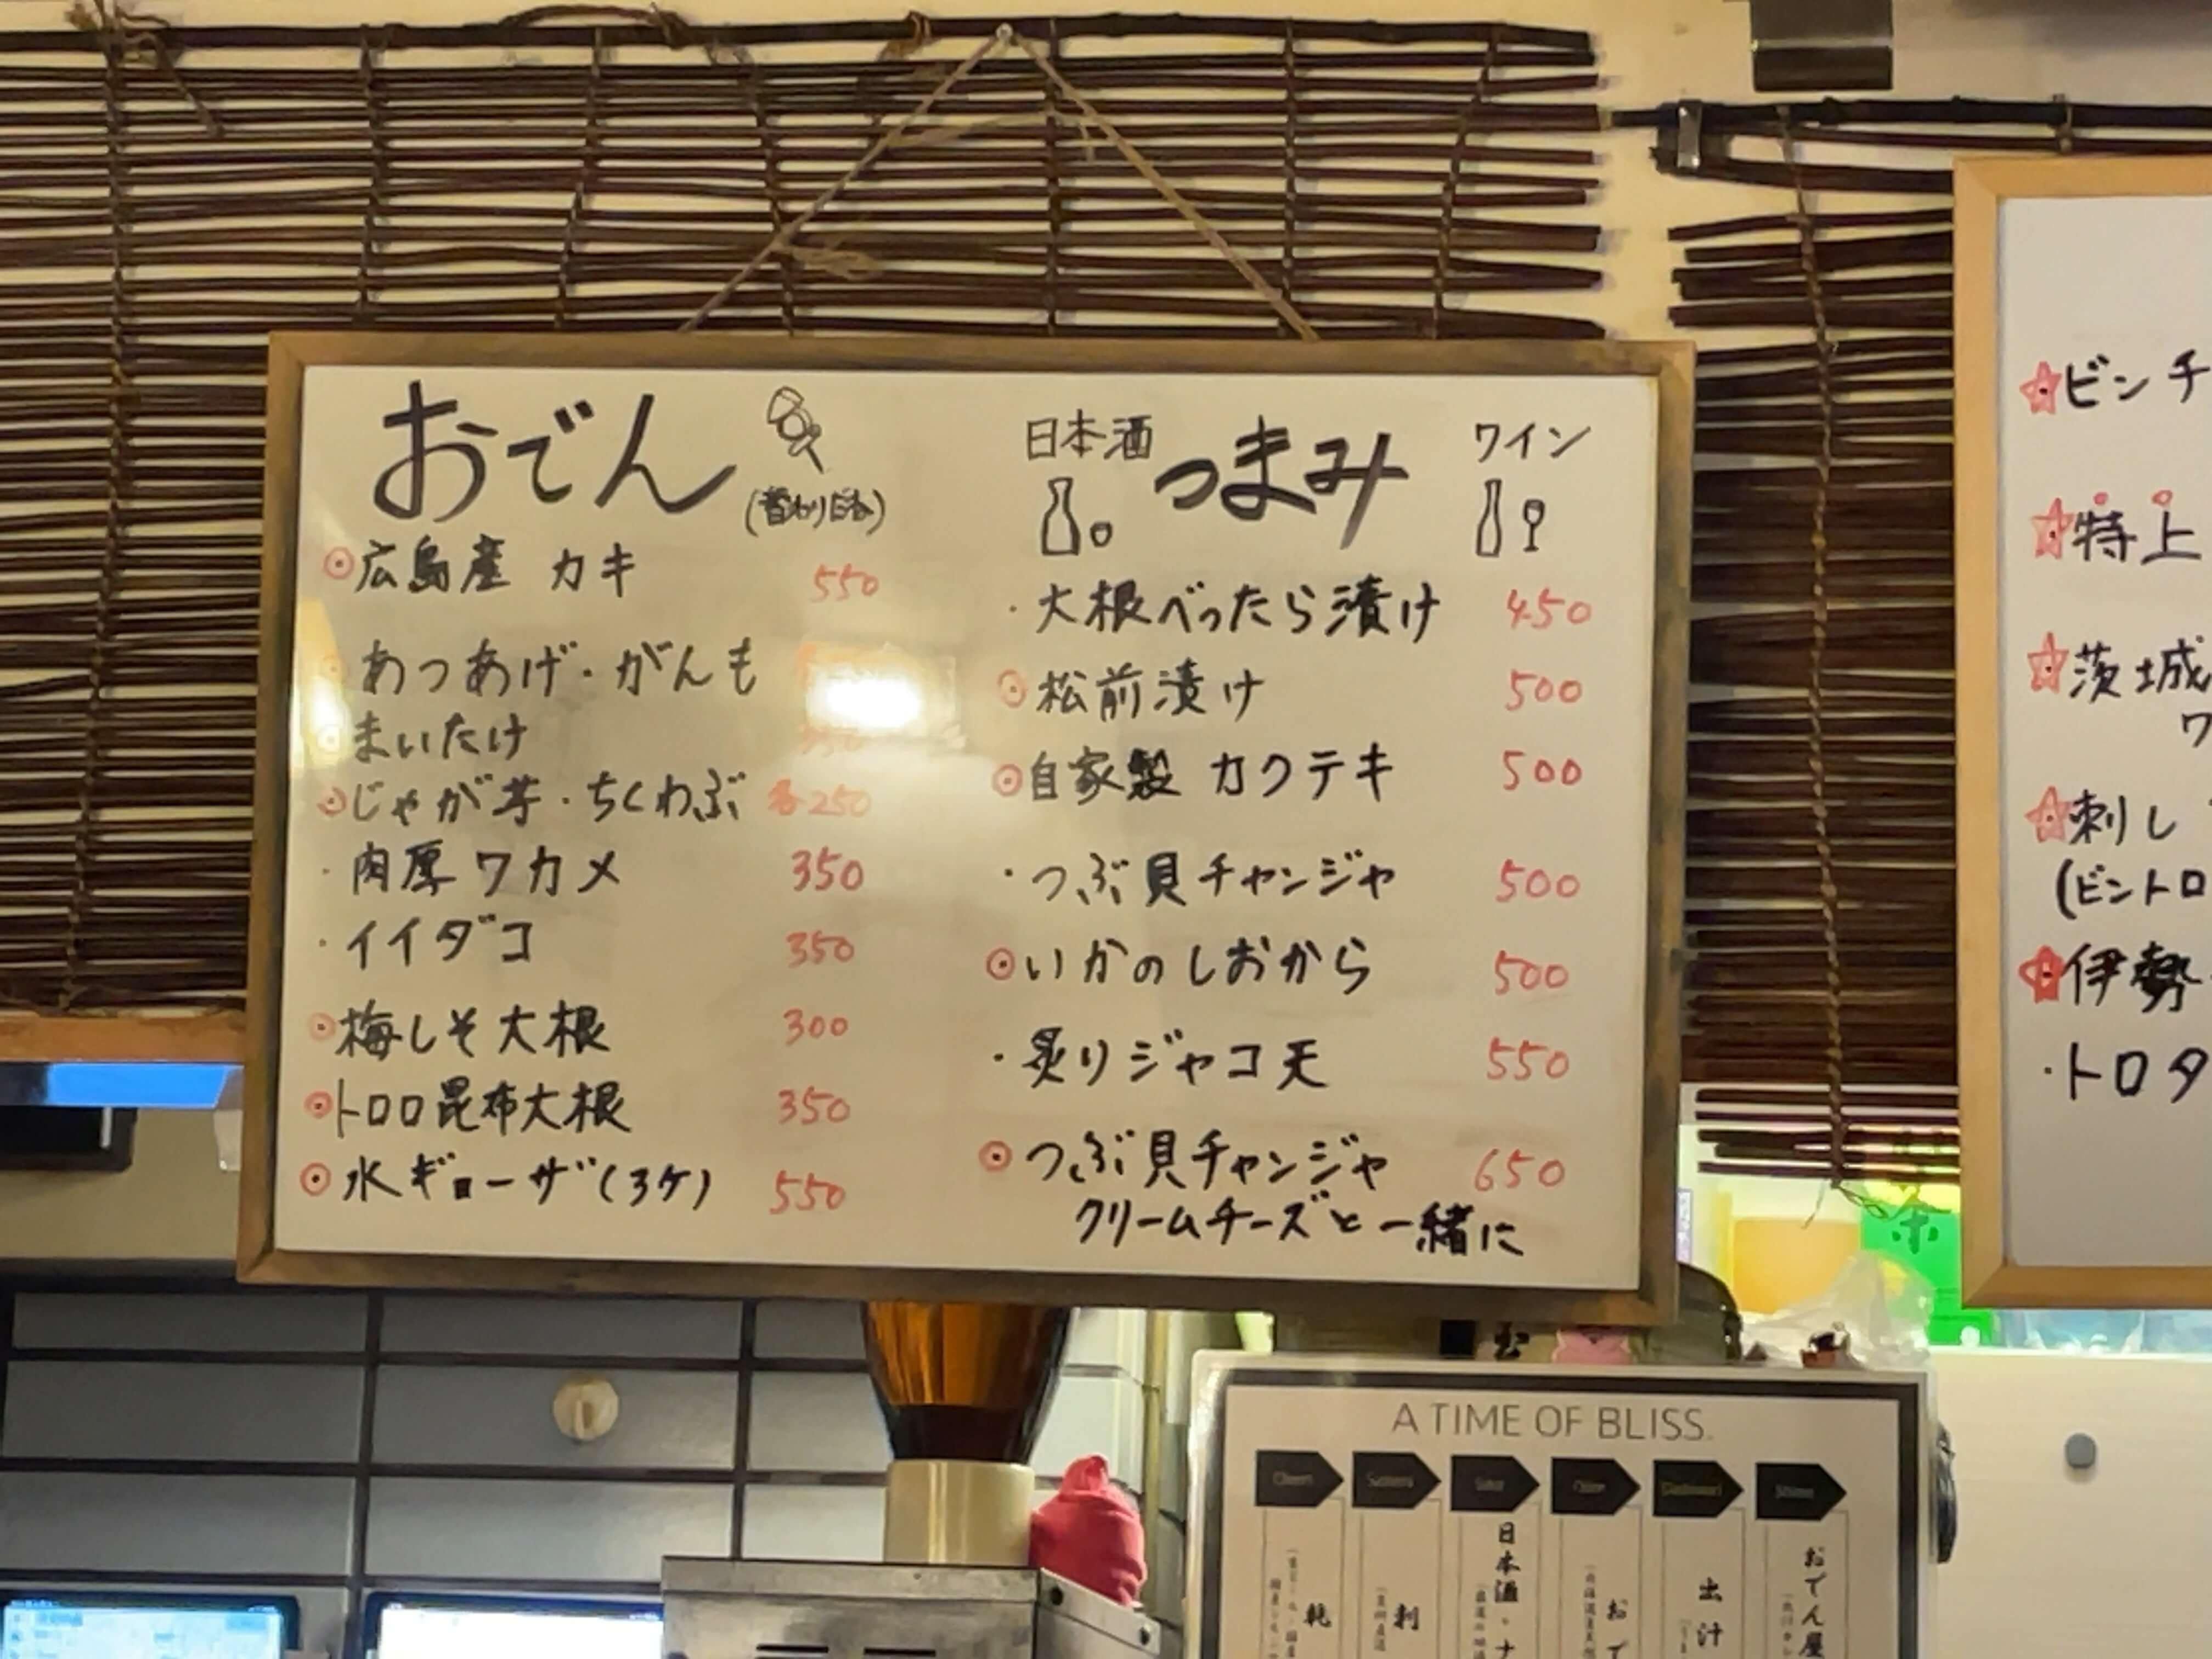 おでん
(替わり種)
広島産 カキ 550
あつあげ・がんも
まいたけ 350
じゃが芋・ちくわぶ 各250
・肉厚ワカメ 350
・イイダコ 350
梅しそ大根 300
トロロ昆布大根 350
水ギョーザ(3ケ) 550
日本酒 つまみ ワイン
・大根べったら漬け 450
松前漬け 500
自家製 カクテキ 500
・つぶ貝チャンジャ 500
いかのしおから 500
・炙りジャコ天 550
つぶ貝チャンジャ 650
クリームチーズと一緒に
ビンチ
特上
茨城
ワ
刺し
(ビントロ
伊勢
・トロタ
茶
A TIME OF BLISS.
乾
刺
日本酒・ナ
おで
出汁
おでん屋